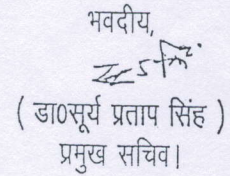 भवदीय,
( डा0सूर्य प्रताप सिंह )
प्रमुख सचिव।